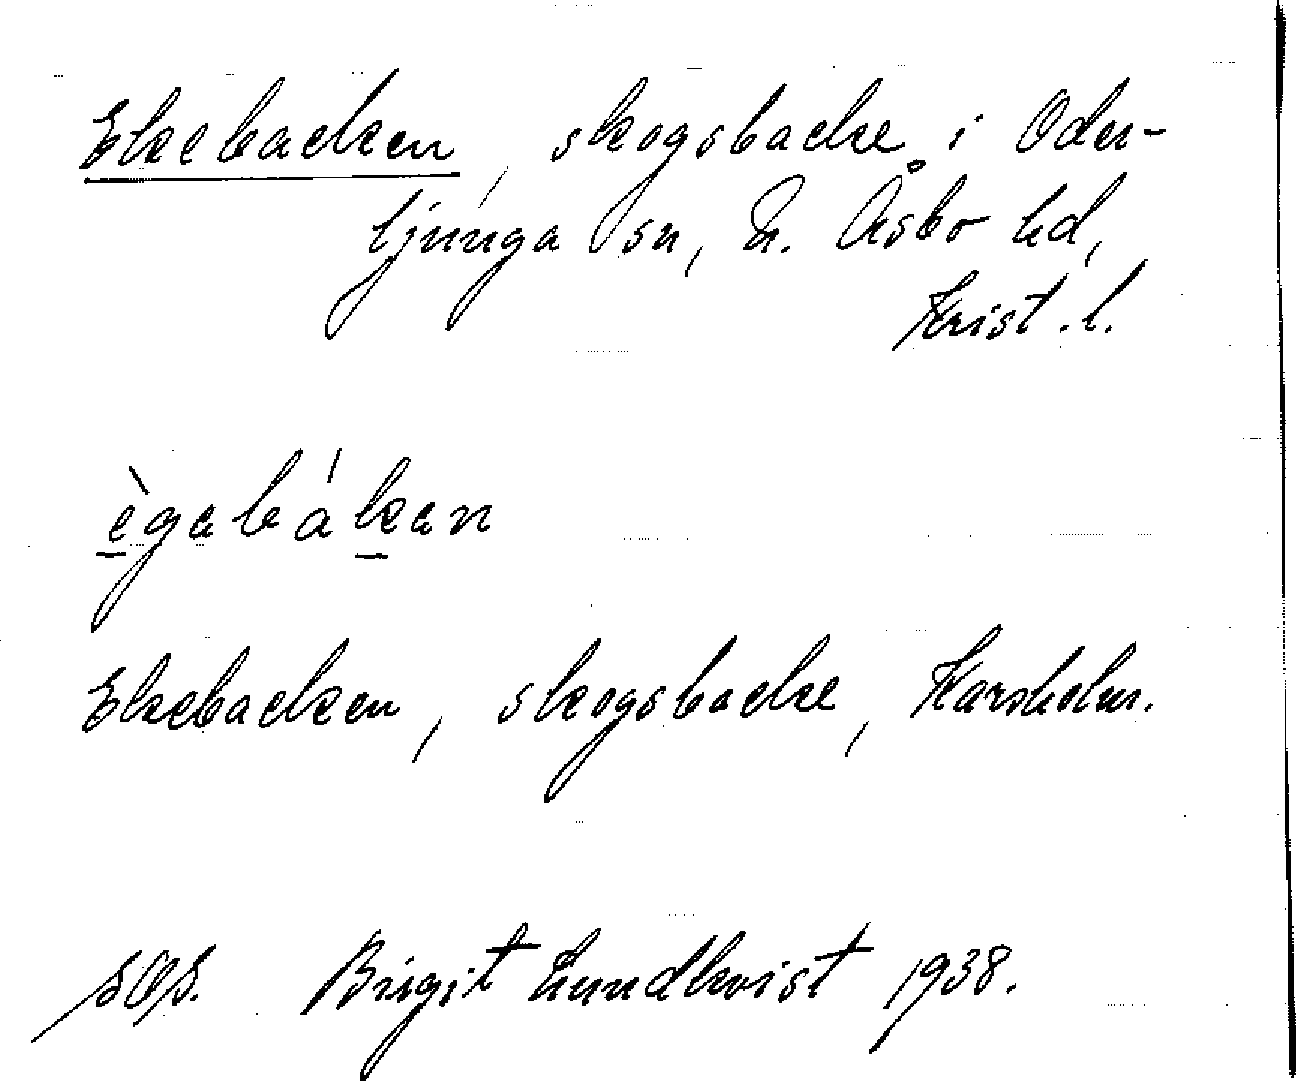 Ekebacken, skogsbacke i Oder-
ljunga sn, N. Åsbo hd,
Krist. l.
ègabákan
Ekebacken, skogsbacke, Karsholm.
SOS. Birgit Lundkvist 1938.